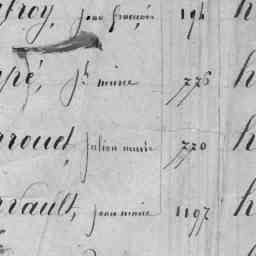 froy, jean françois 194 h
pé, jh marie 776 h
rroud, julien marie 770 h
rvault, jean marie 1197 h